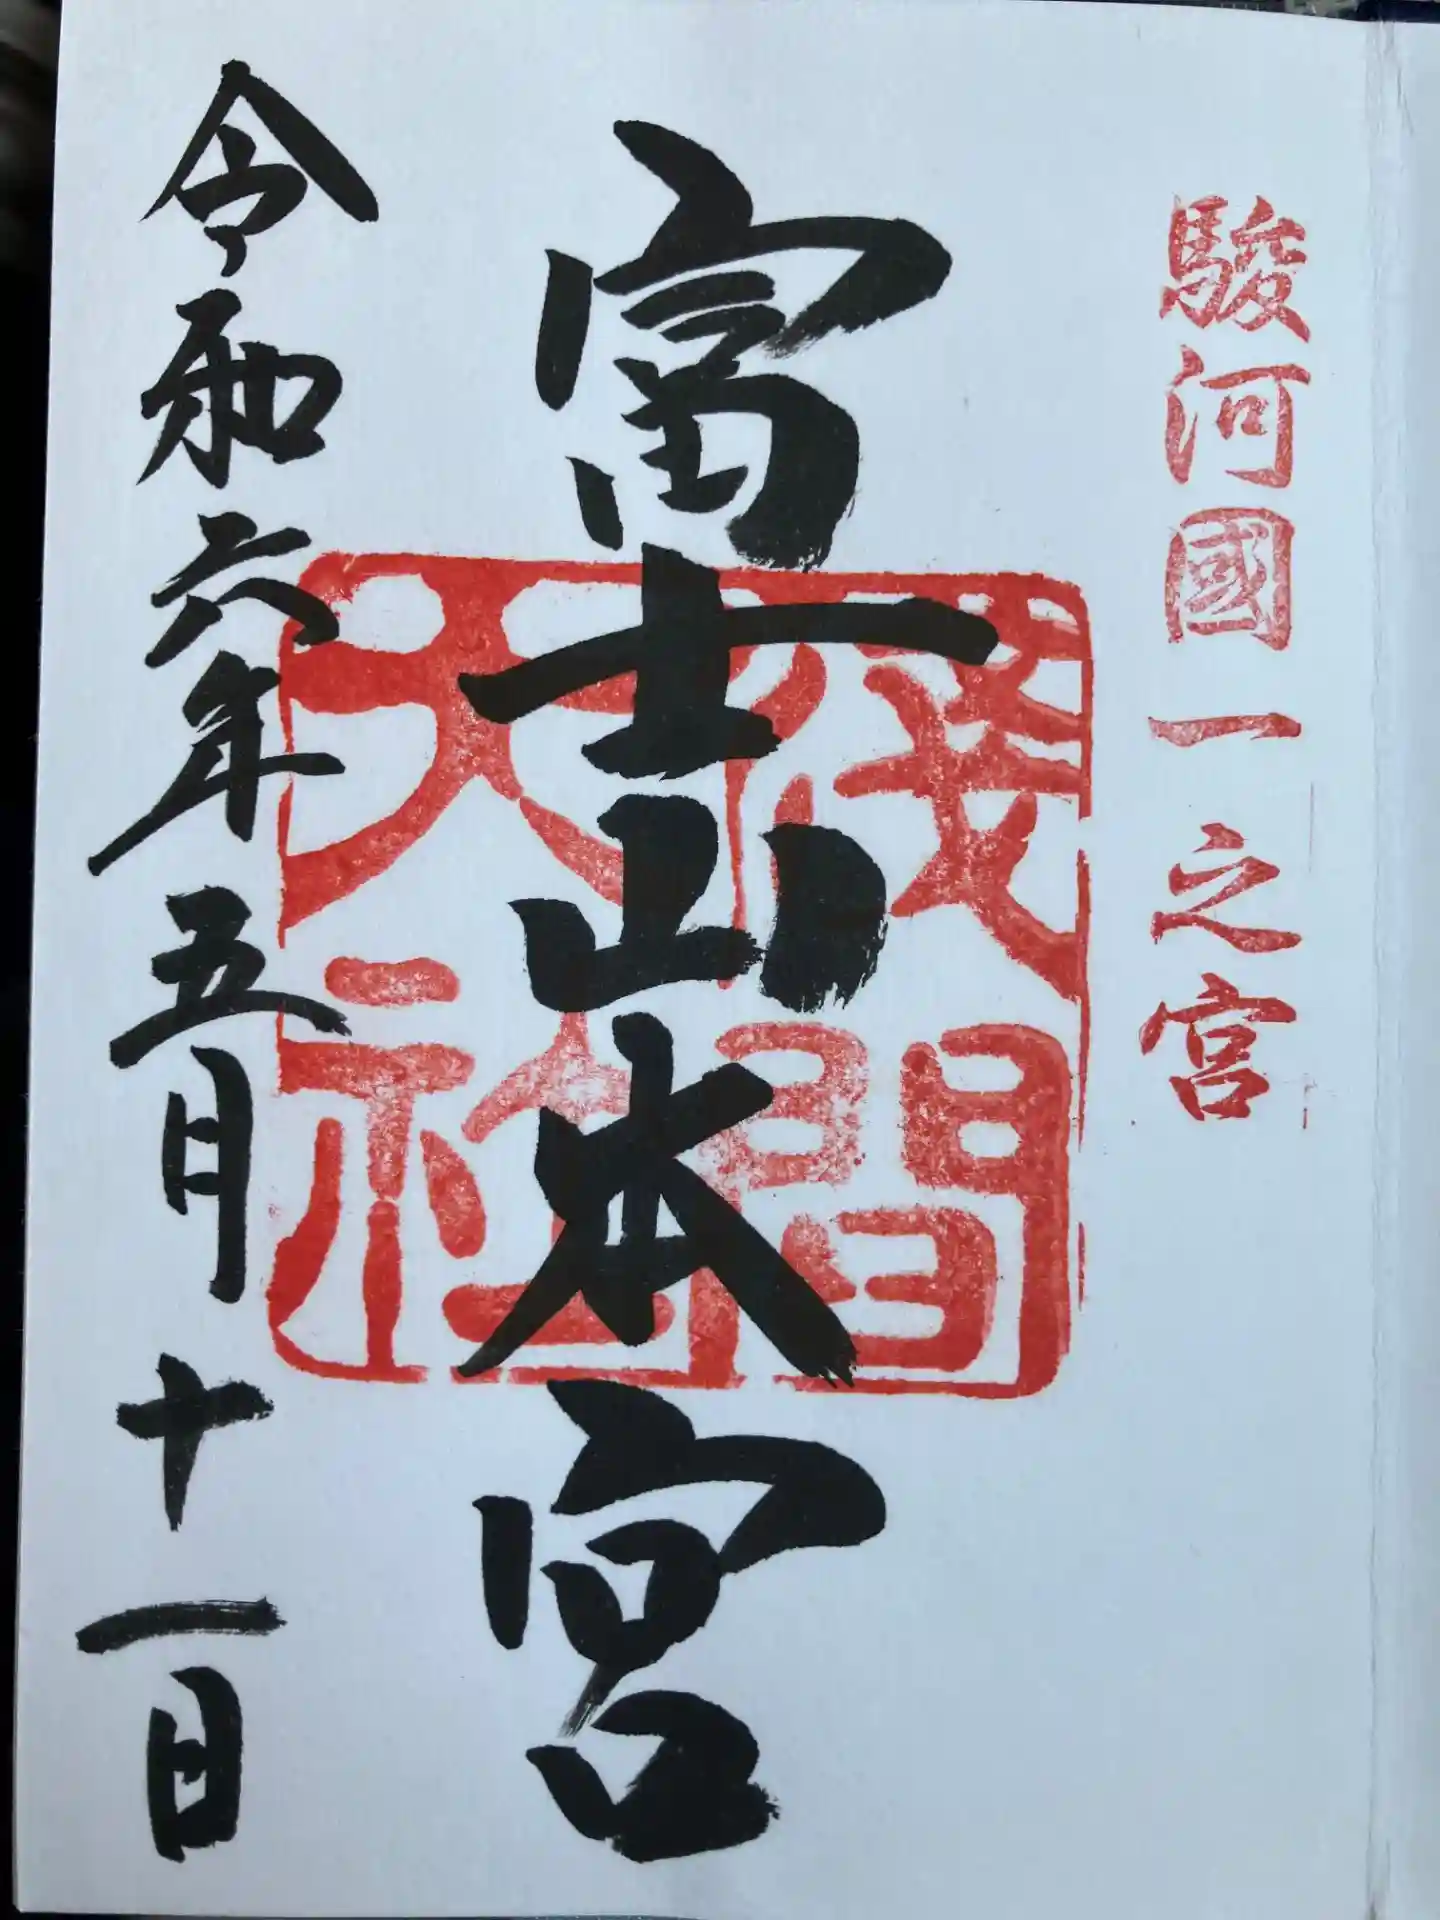 駿河國一之宮
富士山本宮
浅間
大社
令和六年五月十一日